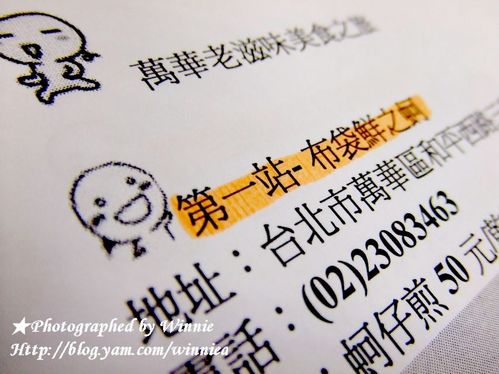 萬華老滋味美食之旅
第一站-布袋鮮之蚵
地址：台北市萬華區和平西路三
電話：(02)23083463
：蚵仔煎 50 元/
★Photographed by Winnie
Http://blog.yam.com/winniea